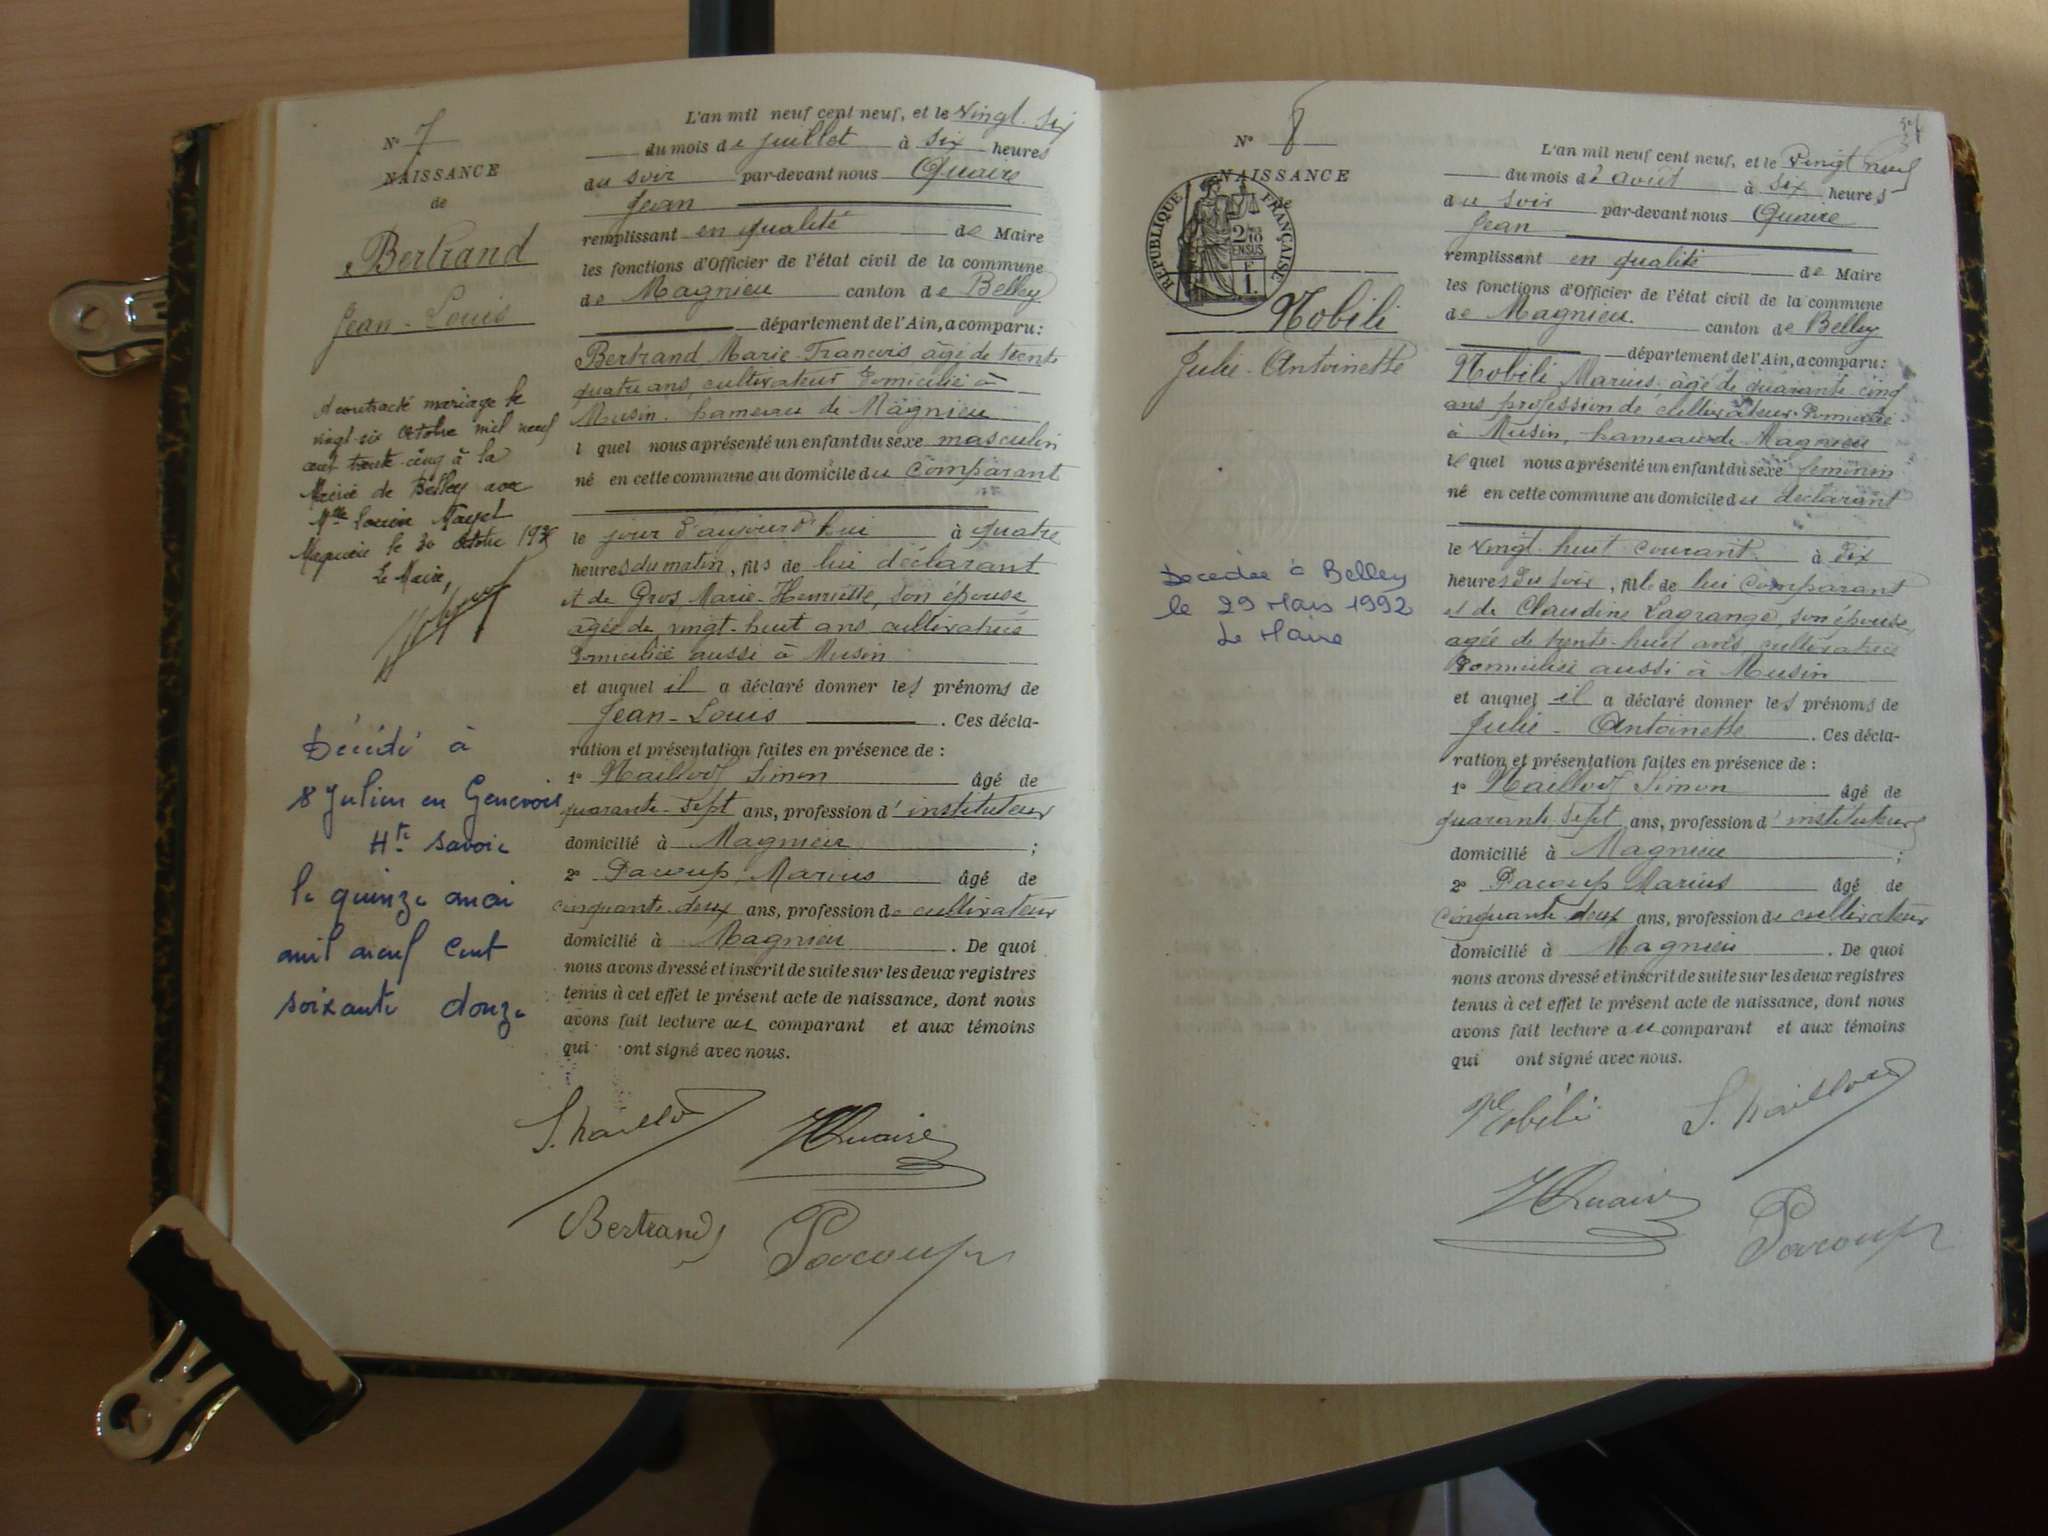 N° 7
NAISSANCE
de
Bertrand
Jean-Louis
A contracté mariage le
vingt six Octobre mil neuf
cent trente cinq à la
Mairie de Belley avec
Mlle
le 30 Octobre 1935
Le Maire,
Décédé à
St Julien en Genevois
Hte Savoie
le quinze mai
mil neuf cent
soixante douze
L'an mil neuf cent neuf, et le vingt-six
du mois de juillet à six heures
du soir par-devant nous Quaire
Jean
remplissant en qualité de Maire
les fonctions d'Officier de l'état civil de la commune
de Magnieu canton de Belley
département de l'Ain, a comparu:
Bertrand, Marie-François âgé de trente
quatre ans, cultivateur domicilié à
Musin, hameau de Magnieu
l quel nous a présenté un enfant du sexe masculin
né en cette commune au domicile du comparant
le jour d'aujourd'hui à quatre
heures du matin, fils de lui déclarant
et de Gros, Marie-Henriette, son épouse
âgée de vingt-huit ans cultivatrice
domiciliée aussi à Musin
et auquel il a déclaré donner les prénoms de
Jean-Louis. Ces décla-
ration et présentation faites en présence de :
1° Naillod Simon âgé de
quarante-sept ans, profession d'instituteur
domicilié à Magnieu ;
2° Pacoup, Marius âgé de
cinquante-deux ans, profession de cultivateur
domicilié à Magnieu. De quoi
nous avons dressé et inscrit de suite sur les deux registres
tenus à cet effet le présent acte de naissance, dont nous
avons fait lecture au comparant et aux témoins
qui ont signé avec nous.
S. Naillod JQuaire
Bertrand Pacoup
N° 8
NAISSANCE
de
RÉPUBLIQUE FRANÇAISE
2/10
EN SUS
F
1.
Nobili
Julie-Antoinette
Décédée à Belley
le 29 Mars 1992
Le Maire
L'an mil neuf cent neuf, et le vingt neuf
du mois d'août à six heures
du soir par-devant nous Quaire
Jean
remplissant en qualité de Maire
les fonctions d'Officier de l'état civil de la commune
de Magnieu. canton de Belley
département de l'Ain, a comparu:
Nobili Marius âgé de quarante-cinq
ans profession de cultivateur domicilié
à Musin, hameau de Magnieu
le quel nous a présenté un enfant du sexe féminin
né en cette commune au domicile du déclarant
le vingt-huit courant à dix
heures du soir, fille de lui comparant
et de Claudine Lagrange, son épouse,
agée de trente-huit ans cultivatrice
domiciliée aussi à Musin
et auquel il a déclaré donner les prénoms de
Julie-Antoinette. Ces décla-
ration et présentation faites en présence de :
1° Naillod Simon âgé de
quarante-sept ans, profession d'instituteur
domicilié à Magnieu ;
2° Pacoup Marius âgé de
cinquante-deux ans, profession de cultivateur
domicilié à Magnieu. De quoi
nous avons dressé et inscrit de suite sur les deux registres
tenus à cet effet le présent acte de naissance, dont nous
avons fait lecture au comparant et aux témoins
qui ont signé avec nous.
Nobili S. Naillod
JQuaire Pacoup